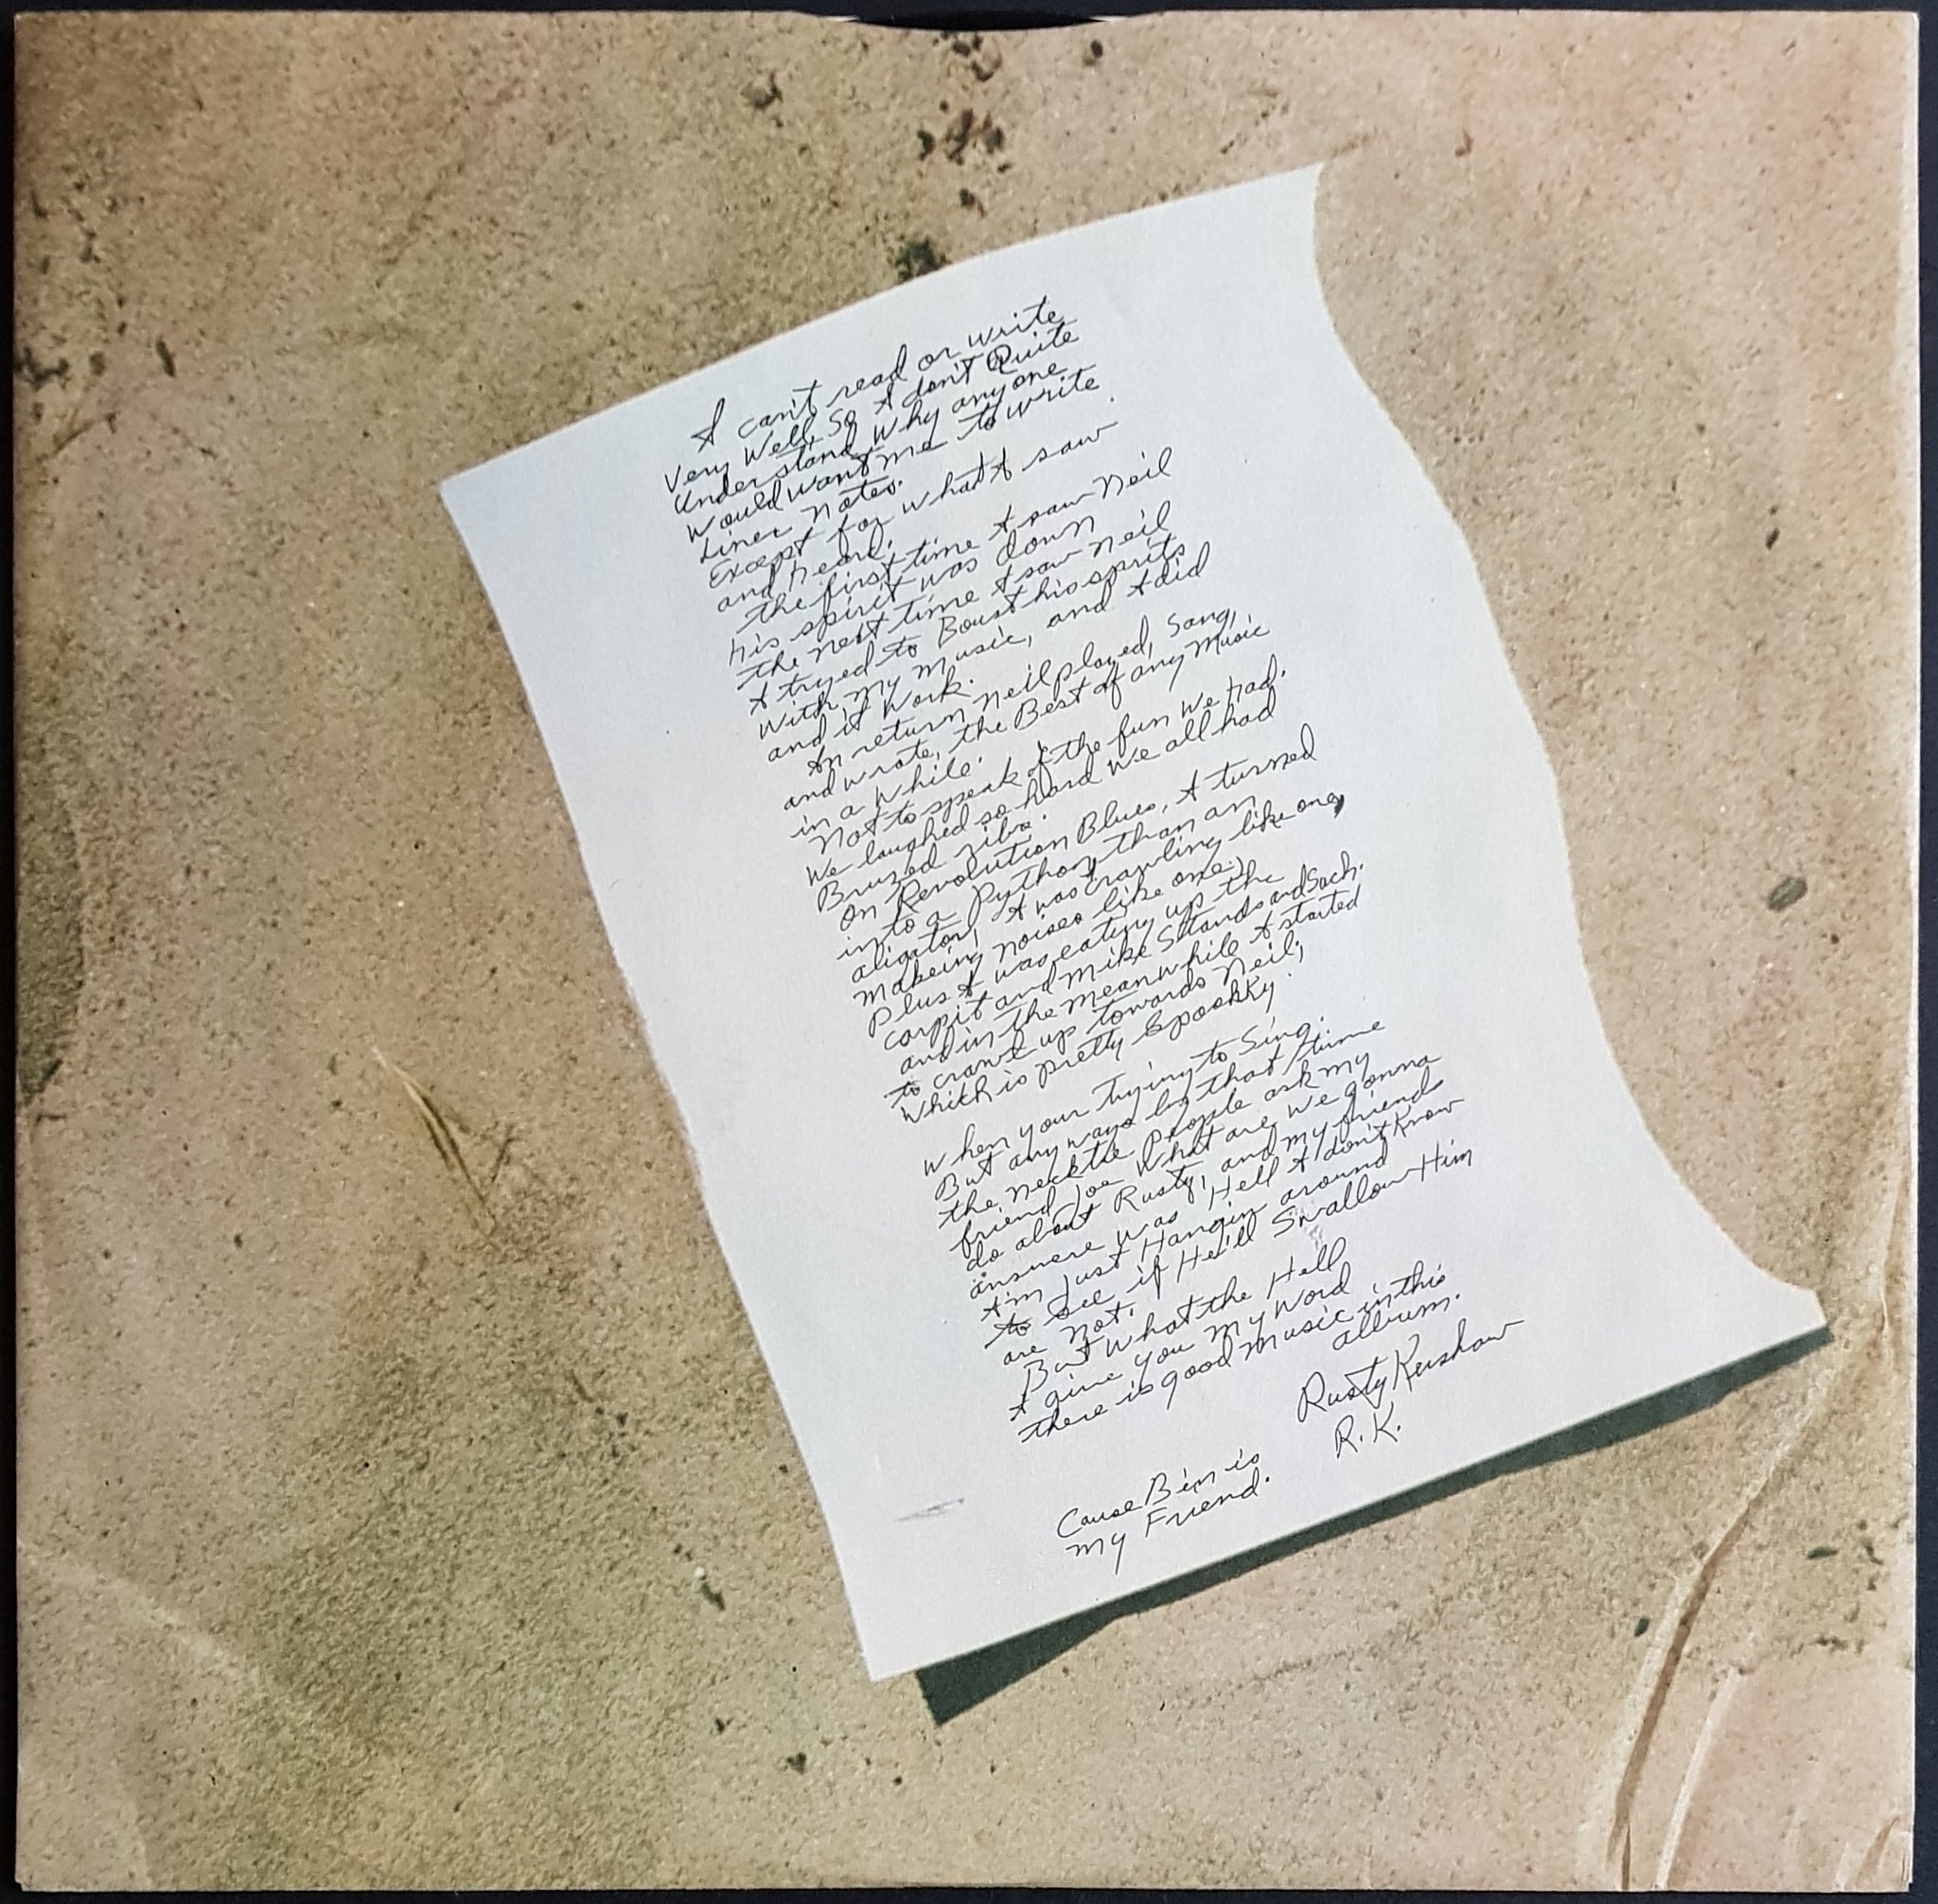 I can't read or write
Very Well, So I don't Quite
Understand Why anyone
Would want me to write
Liner notes.
Except for what I saw
and heard.
the first time I saw Neil
his spirit was down
the next time I saw Neil
I tryed to Boust his sprits
With my music, and I did
and it Work.
In return Neil played, Sang,
and wrote, the Best of any Music
in a while.
Not to speak of the fun we had.
We laughed so hard we all had
Bruzed ribs.
On Revolution Blues, I turned
into a Python, than an
aligator, I was crawling like one,
makeing noises like one,
plus I was eating up the
carpit and mike Stands and Sach.
and in the meanwhile I started
to crawl up towards Neil,
Which is pretty Spookky.
When your trying to Sing.
But any ways by that time
the necktie People ask my
friend Joe What are we gonna
do about Rusty, and my friends
ansuere was Hell I don't Know
I'm just Hangin around
to see if He'll Swallow Him
are Not.
But What the Hell
I give you my Word
there is good music in this
album.
Rusty Kershaw
R.K.
Cause Ben is
my Friend.